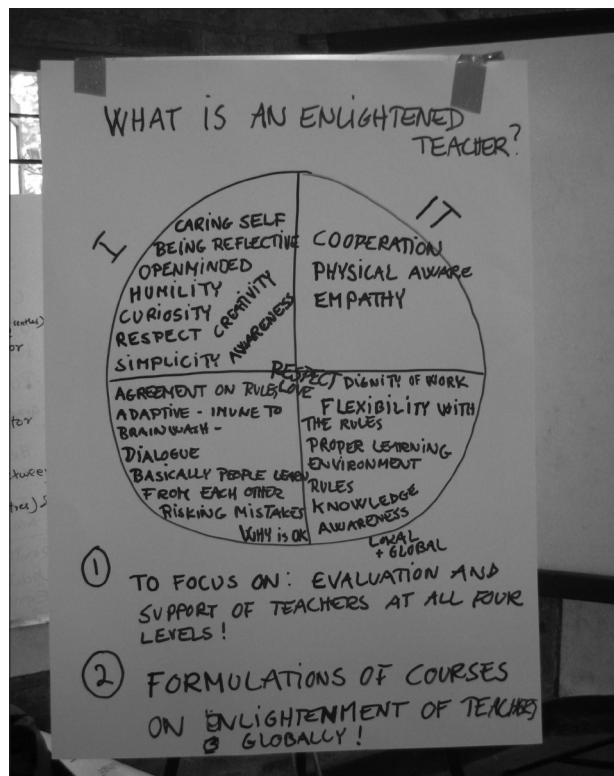 WHAT IS AN ENLIGHTENED
TEACHER?
I
CARING SELF
BEING REFLECTIVE
OPENMINDED
HUMILITY
CURIOSITY
RESPECT
SIMPLICITY
CREATIVITY
AWARENESS
IT
COOPERATION
PHYSICAL AWARE
EMPATHY
RESPECT
LOVE
AGREEMENT ON RULES
ADAPTIVE - IMUNE TO
BRAINWASH -
DIALOGUE
BASICALLY PEOPLE LEARN
FROM EACH OTHER
RISKING MISTAKES
WHY is OK
DIGNITY OF WORK
FLEXIBILITY WITH
THE RULES
PROPER LEARNING
ENVIRONMENT
RULES
KNOWLEDGE
AWARENESS
LOKAL
+ GLOBAL
① TO FOCUS ON: EVALUATION AND
SUPPORT OF TEACHERS AT ALL FOUR
LEVELS!
② FORMULATIONS OF COURSES
ON ENLIGHTENMENT OF TEACHERS
GLOBALLY!